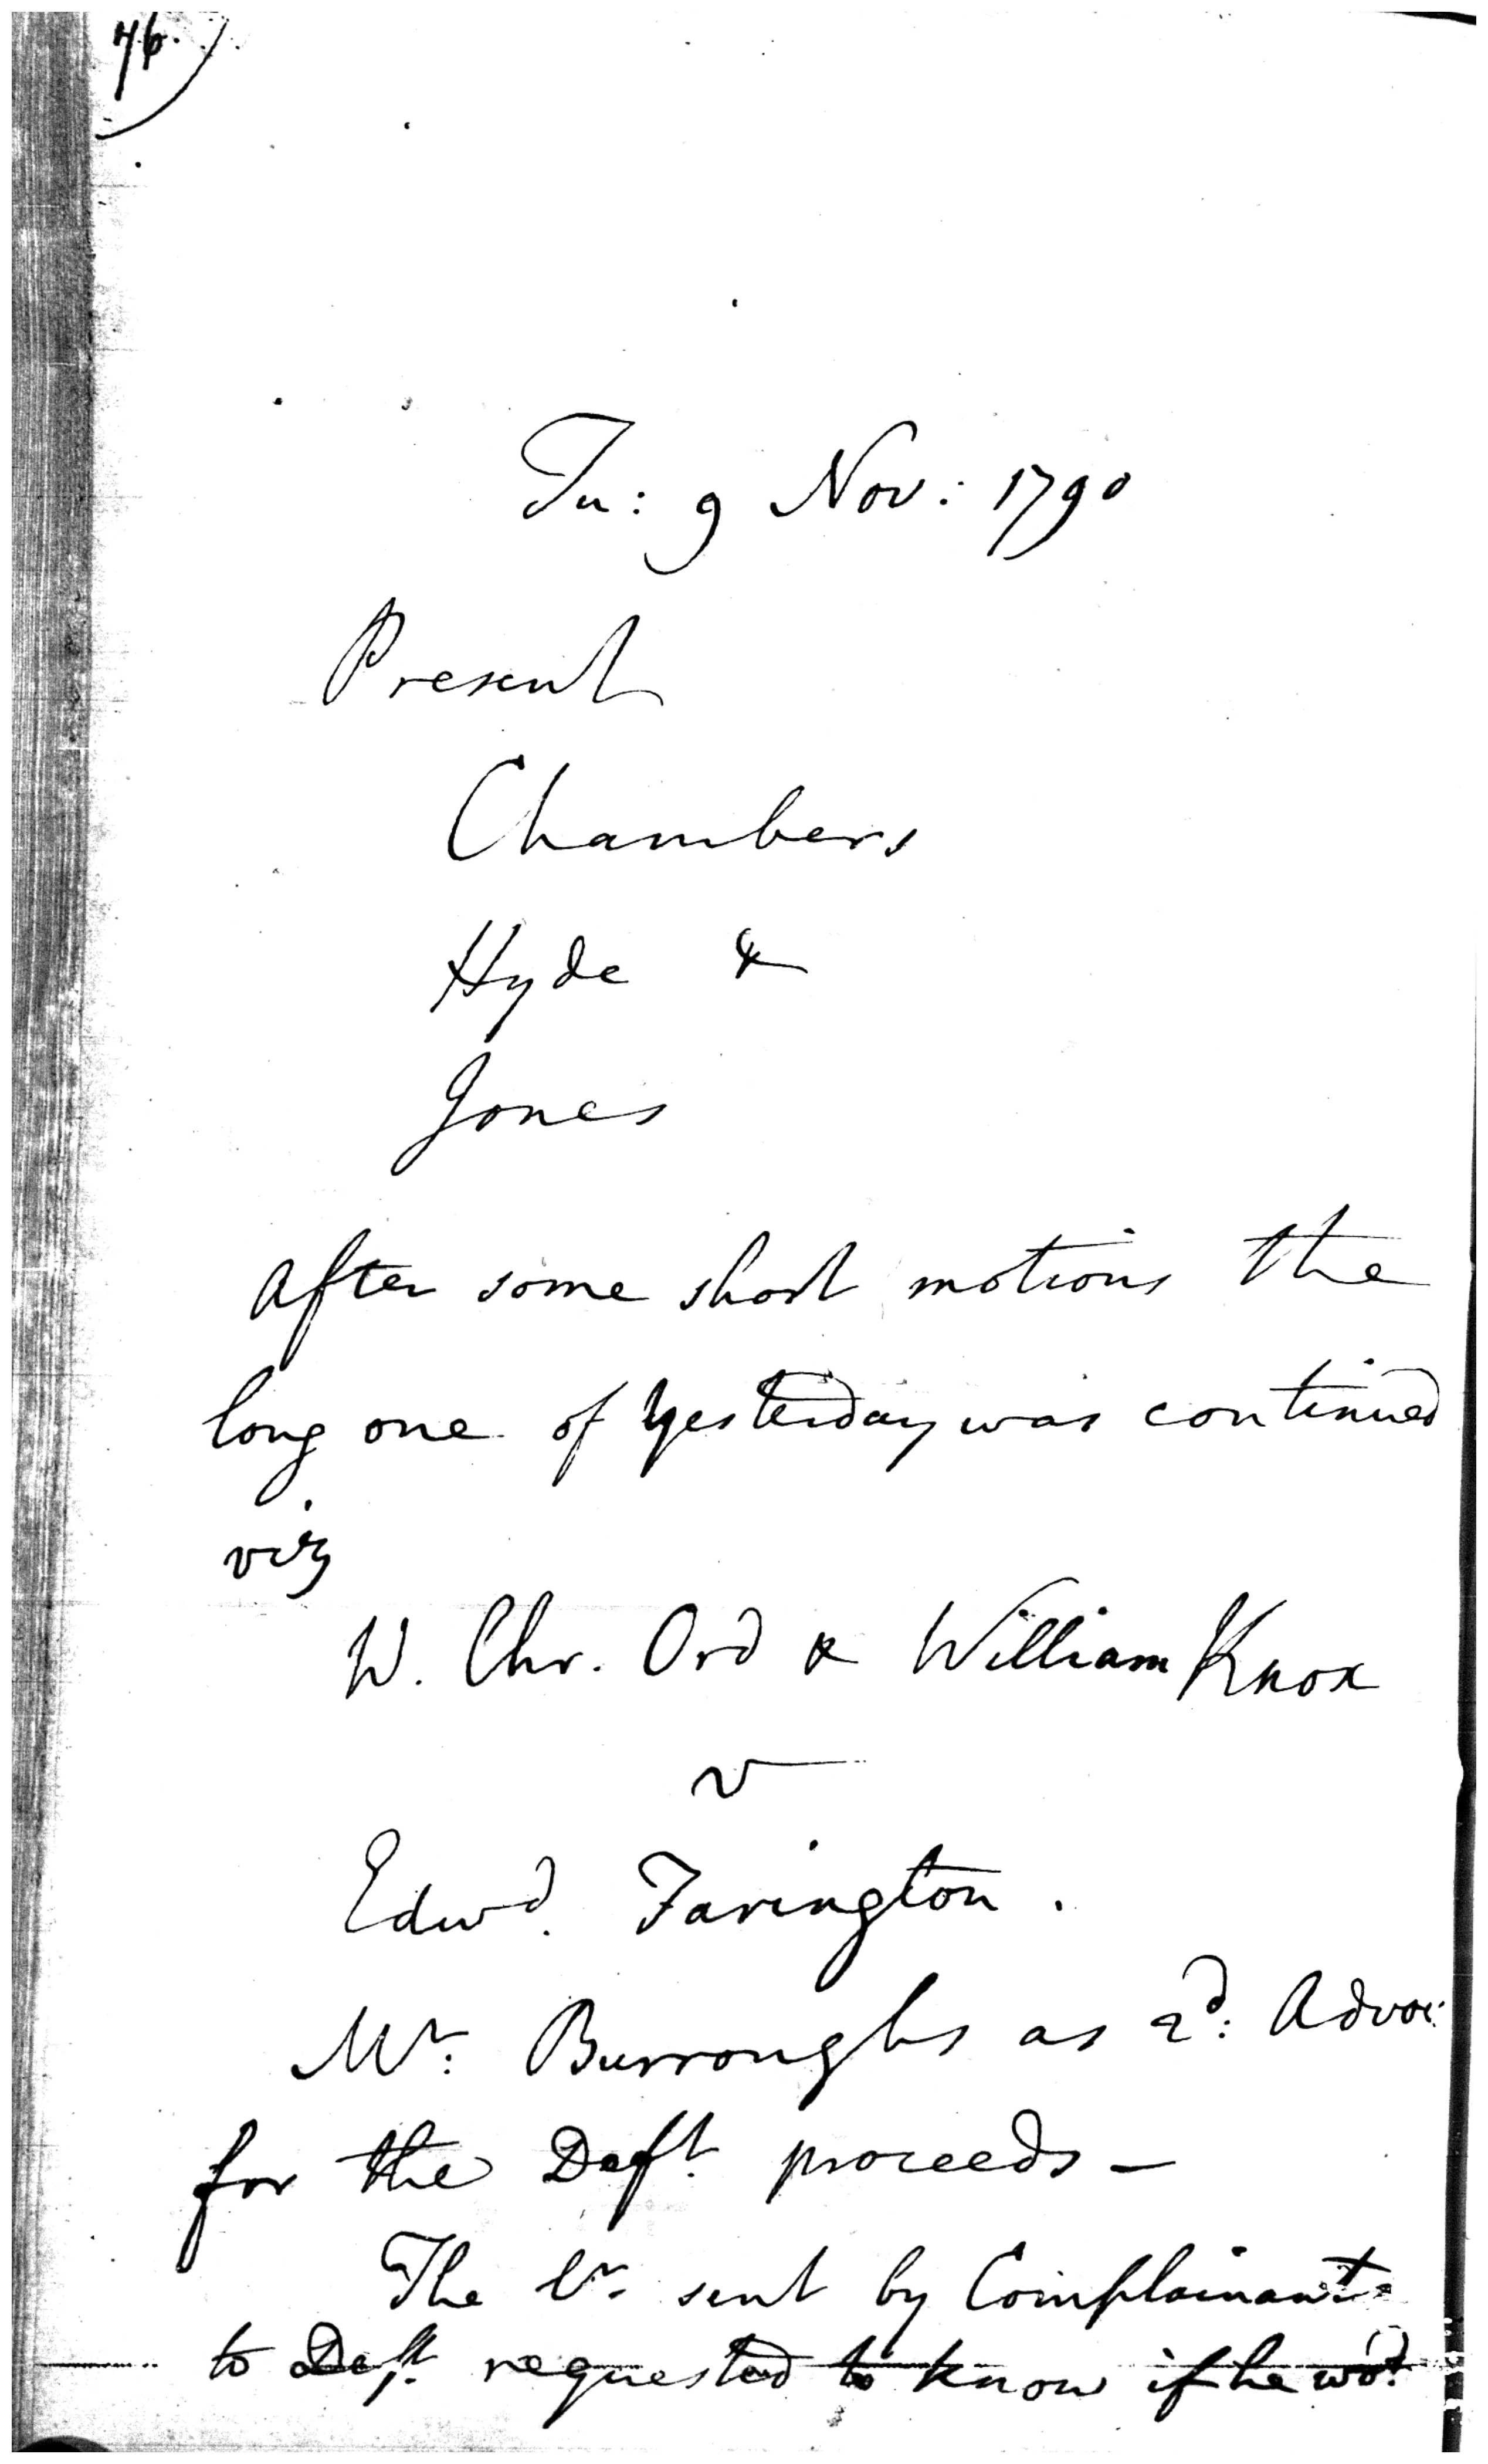 76.
Tu: 9 Nov: 1790
Present
Chambers
Hyde &
Jones
After some short motions the
long one of Yesterday was continued
viz
W. Chr. Ord & William Knox
v
Edwd. Farington.
Mr: Burroughs as 2d: Advoc:
for the Deft. proceeds –
The lr. sent by Complainants
to Deft. requested to know if he wod.